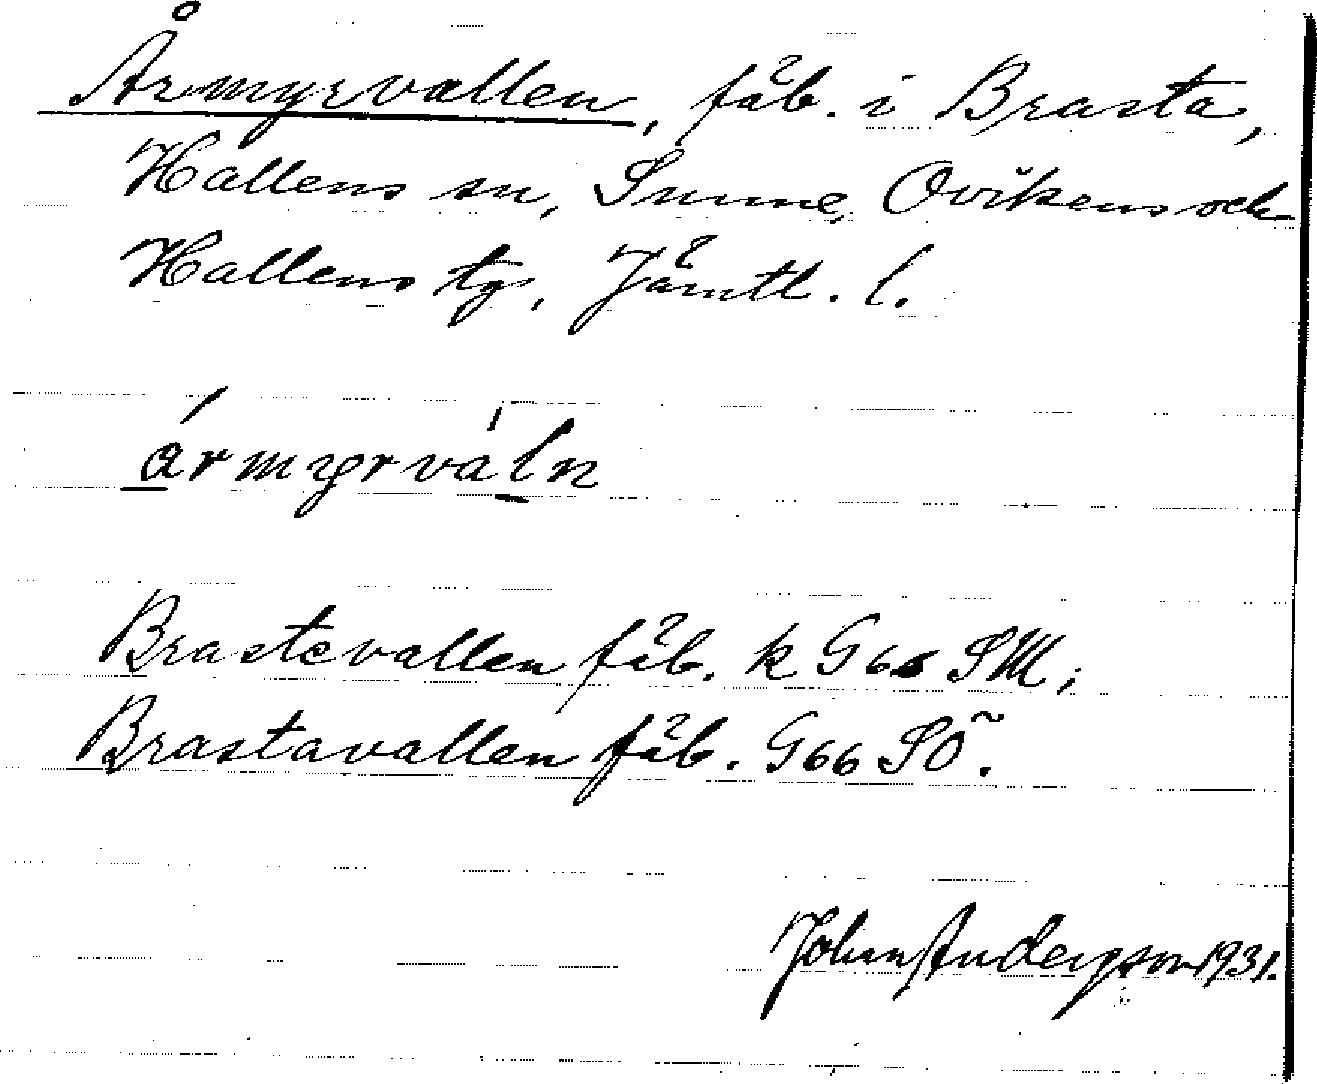 Årmyrvallen, fäb. i Brasta,
Hallens sn, Sunne, Ovikens och
Hallens tg, Jämtl. l.
ármyrváln
Brastevallen fäb. k G66 SM;
Brastavallen fäb. G66 SÖ.
John Anderson 1931.